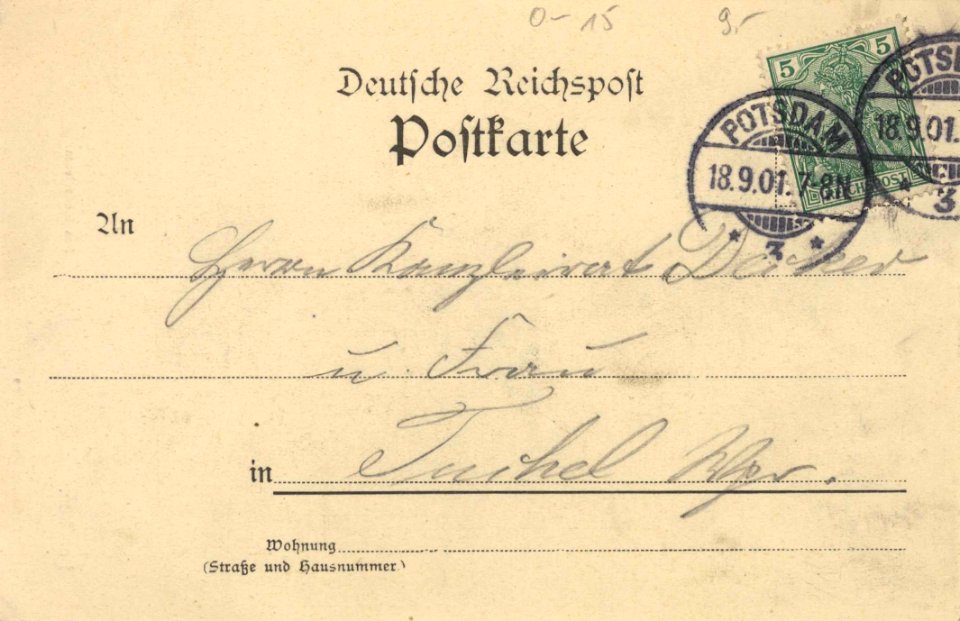 0-15 9,-
Deutsche Reichspost
Postkarte
5 5
POTSDAM
18.9.01. 7-8N
* 3 *
POTSD
18.9.01.
* 3
An
Herrn Kanzleirat
u. Frau
in Tuchel Wpr.
Wohnung
(Straße und Hausnummer)